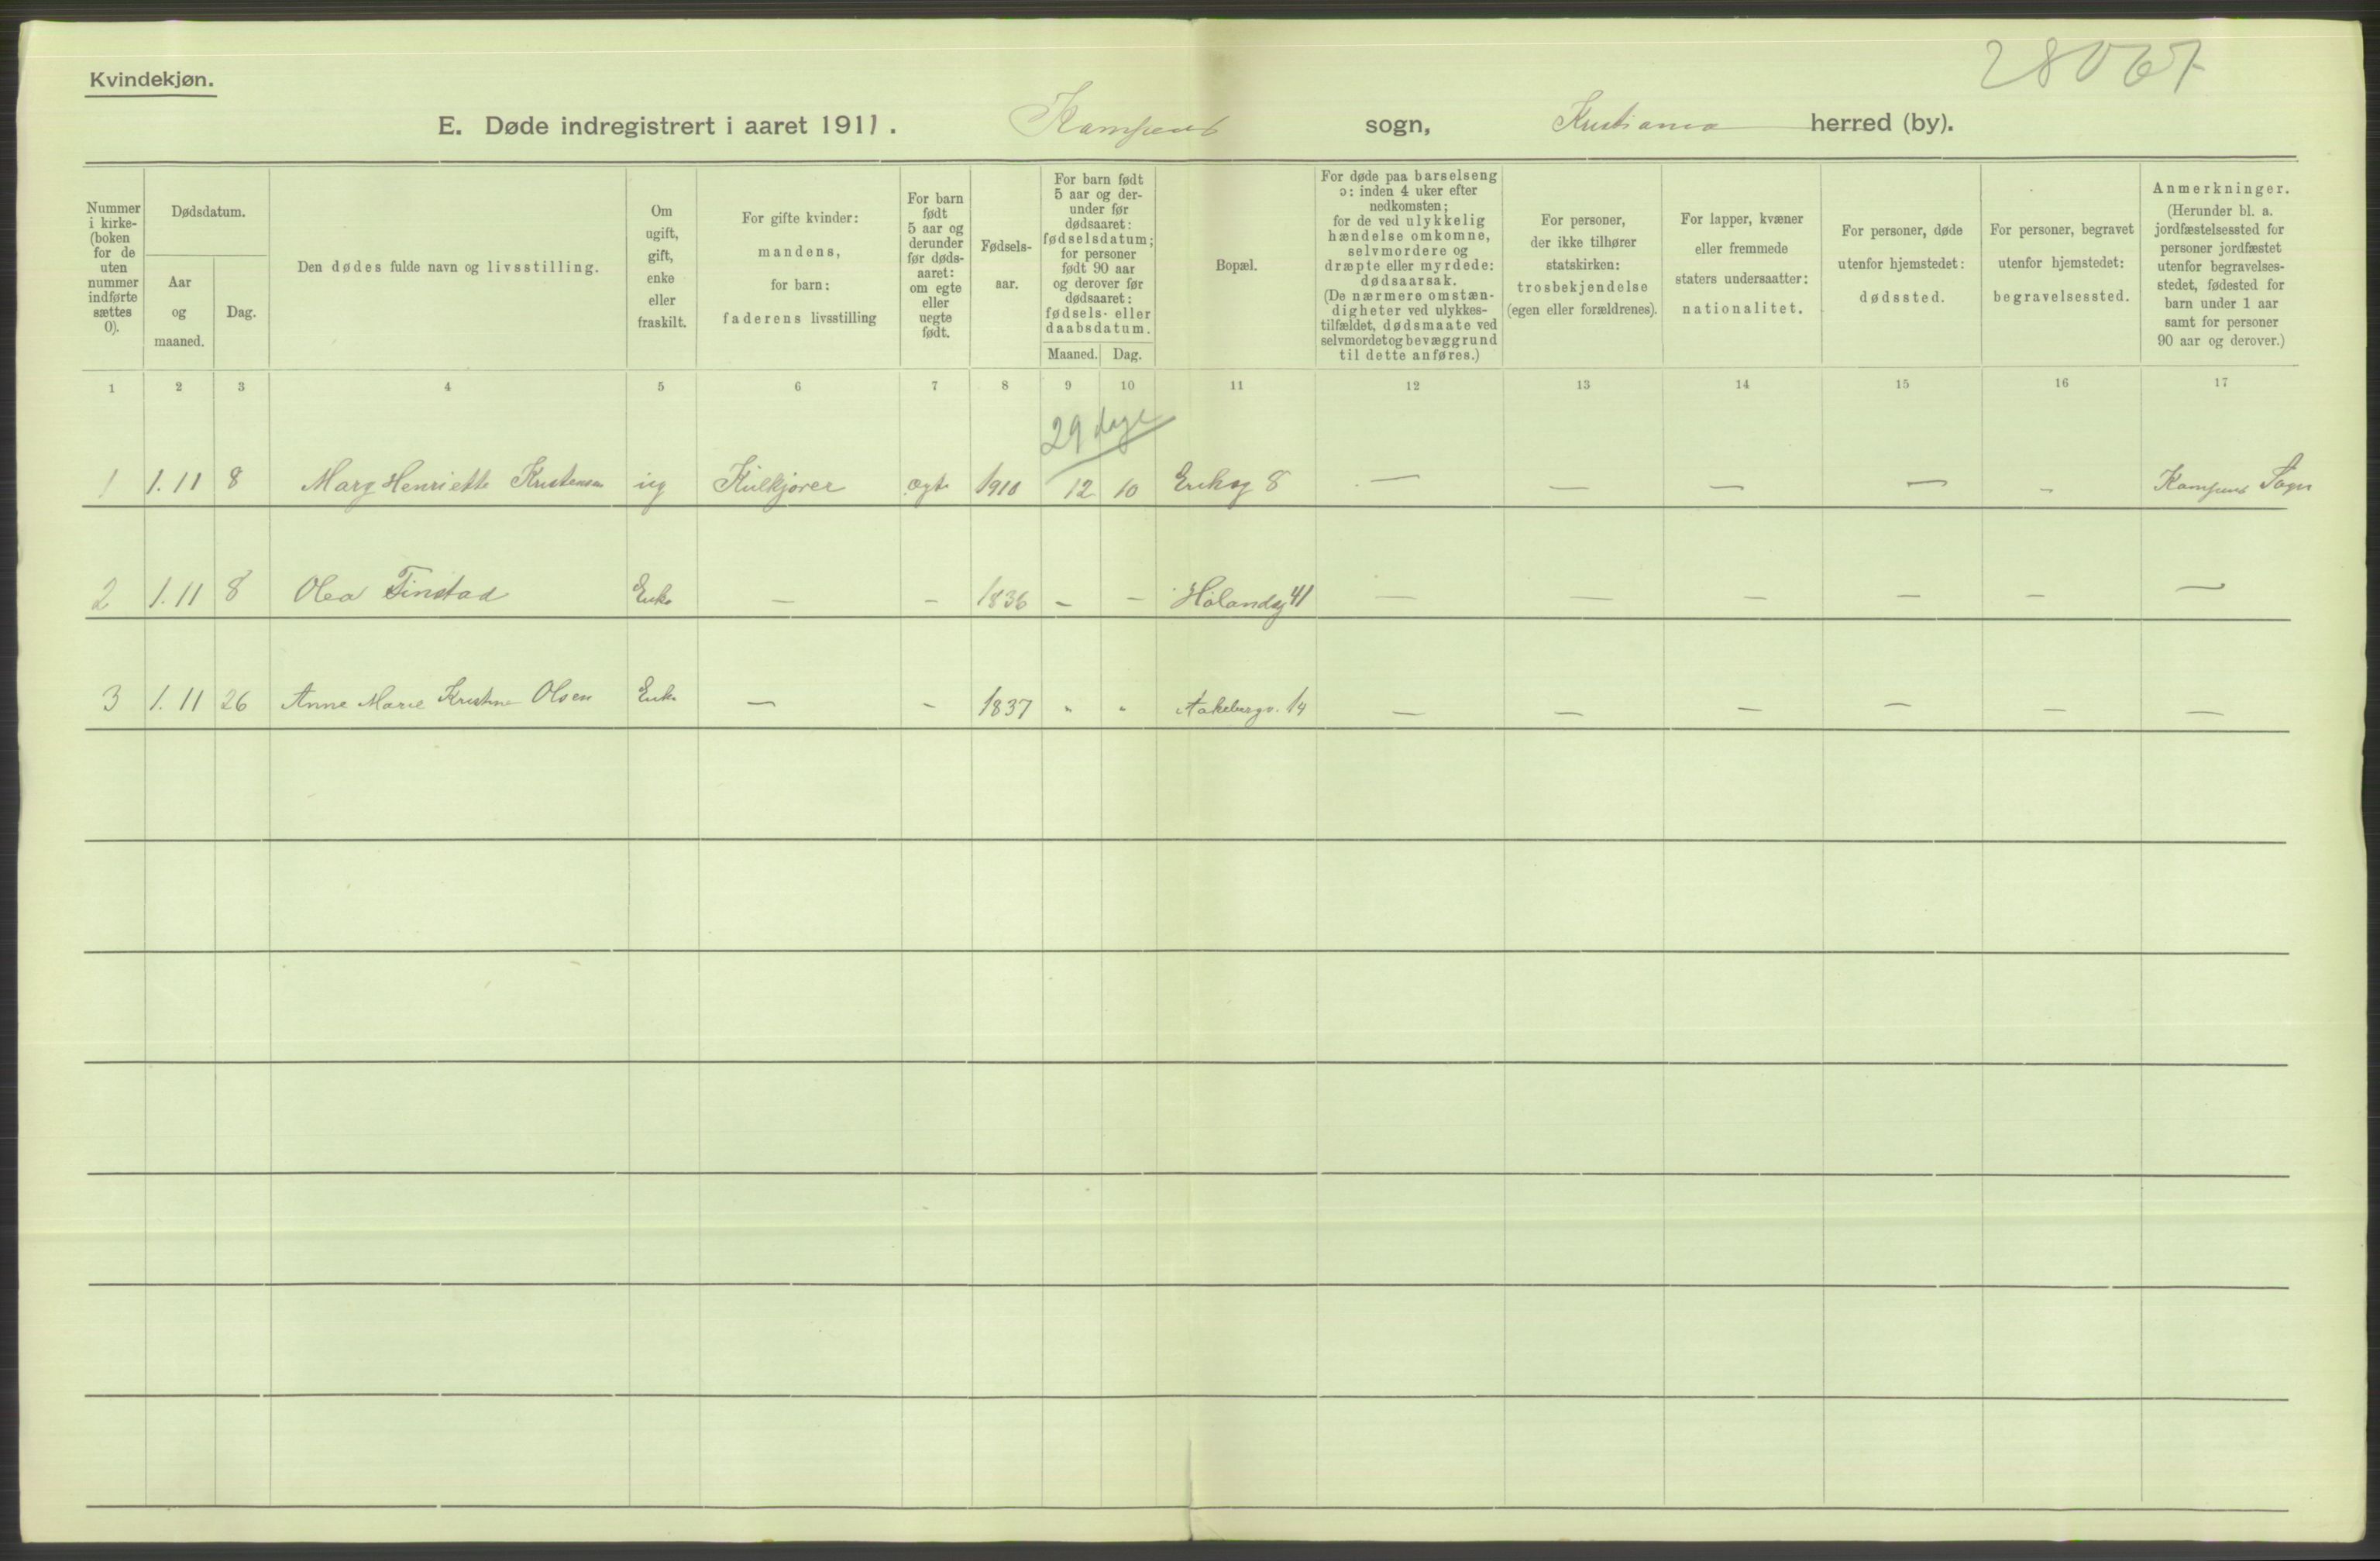 Kvindekjøn.
28067
E. Døde indregistrert i aaret 1911. Kampens sogn, Kristiania herred (by).
Nummer i kirkeboken for de uten nummer indførte sættes 0).
Dødsdatum.
Aar og maaned.
Dag.
Den dødes fulde navn og livsstilling.
Om ugift, gift, enke eller fraskilt.
For gifte kvinder: mandens, for barn: faderens livsstilling
For barn født 5 aar og derunder før dødsaaret: om egte eller uegte født.
Fødselsaar.
For barn født 5 aar og derunder før dødsaaret: fødselsdatum; for personer født 90 aar og derover før dødsaaret: fødsels- eller daabsdatum.
Maaned. Dag.
Bopæl.
For døde paa barselseng ɔ: inden 4 uker efter nedkomsten; for de ved ulykkelig hændelse omkomne, selvmordere og dræpte eller myrdede: dødsaarsak. (De nærmere omstændigheter ved ulykkestilfældet, dødsmaate ved selvmordet og bevæggrund til dette anføres.)
For personer, der ikke tilhører statskirken: trosbekjendelse (egen eller forældrenes).
For lapper, kvæner eller fremmede staters undersaatter: nationalitet.
For personer, døde utenfor hjemstedet: dødssted.
For personer, begravet utenfor hjemstedet: begravelsessted.
Anmerkninger. (Herunder bl. a. jordfæstelsessted for personer jordfæstet utenfor begravelsesstedet, fødested for barn under 1 aar samt for personer 90 aar og derover.)
1 2 3 4 5 6 7 8 9 10 11 12 13 14 15 16 17
29 dage
1 1.11 8 Marg Henriette Kristensen ug Kulkjører ægte 1910 12 10 Eriksg 8 — — — — — Kampens Sogn
2 1.11 8 Olea Finstad Enke — — 1836 - - Hølandsg 41 — — — — — —
3 1.11 26 Anne Marie Kristine Olsen Enke — - 1837 " " Aakebergv. 14 — — — — — —